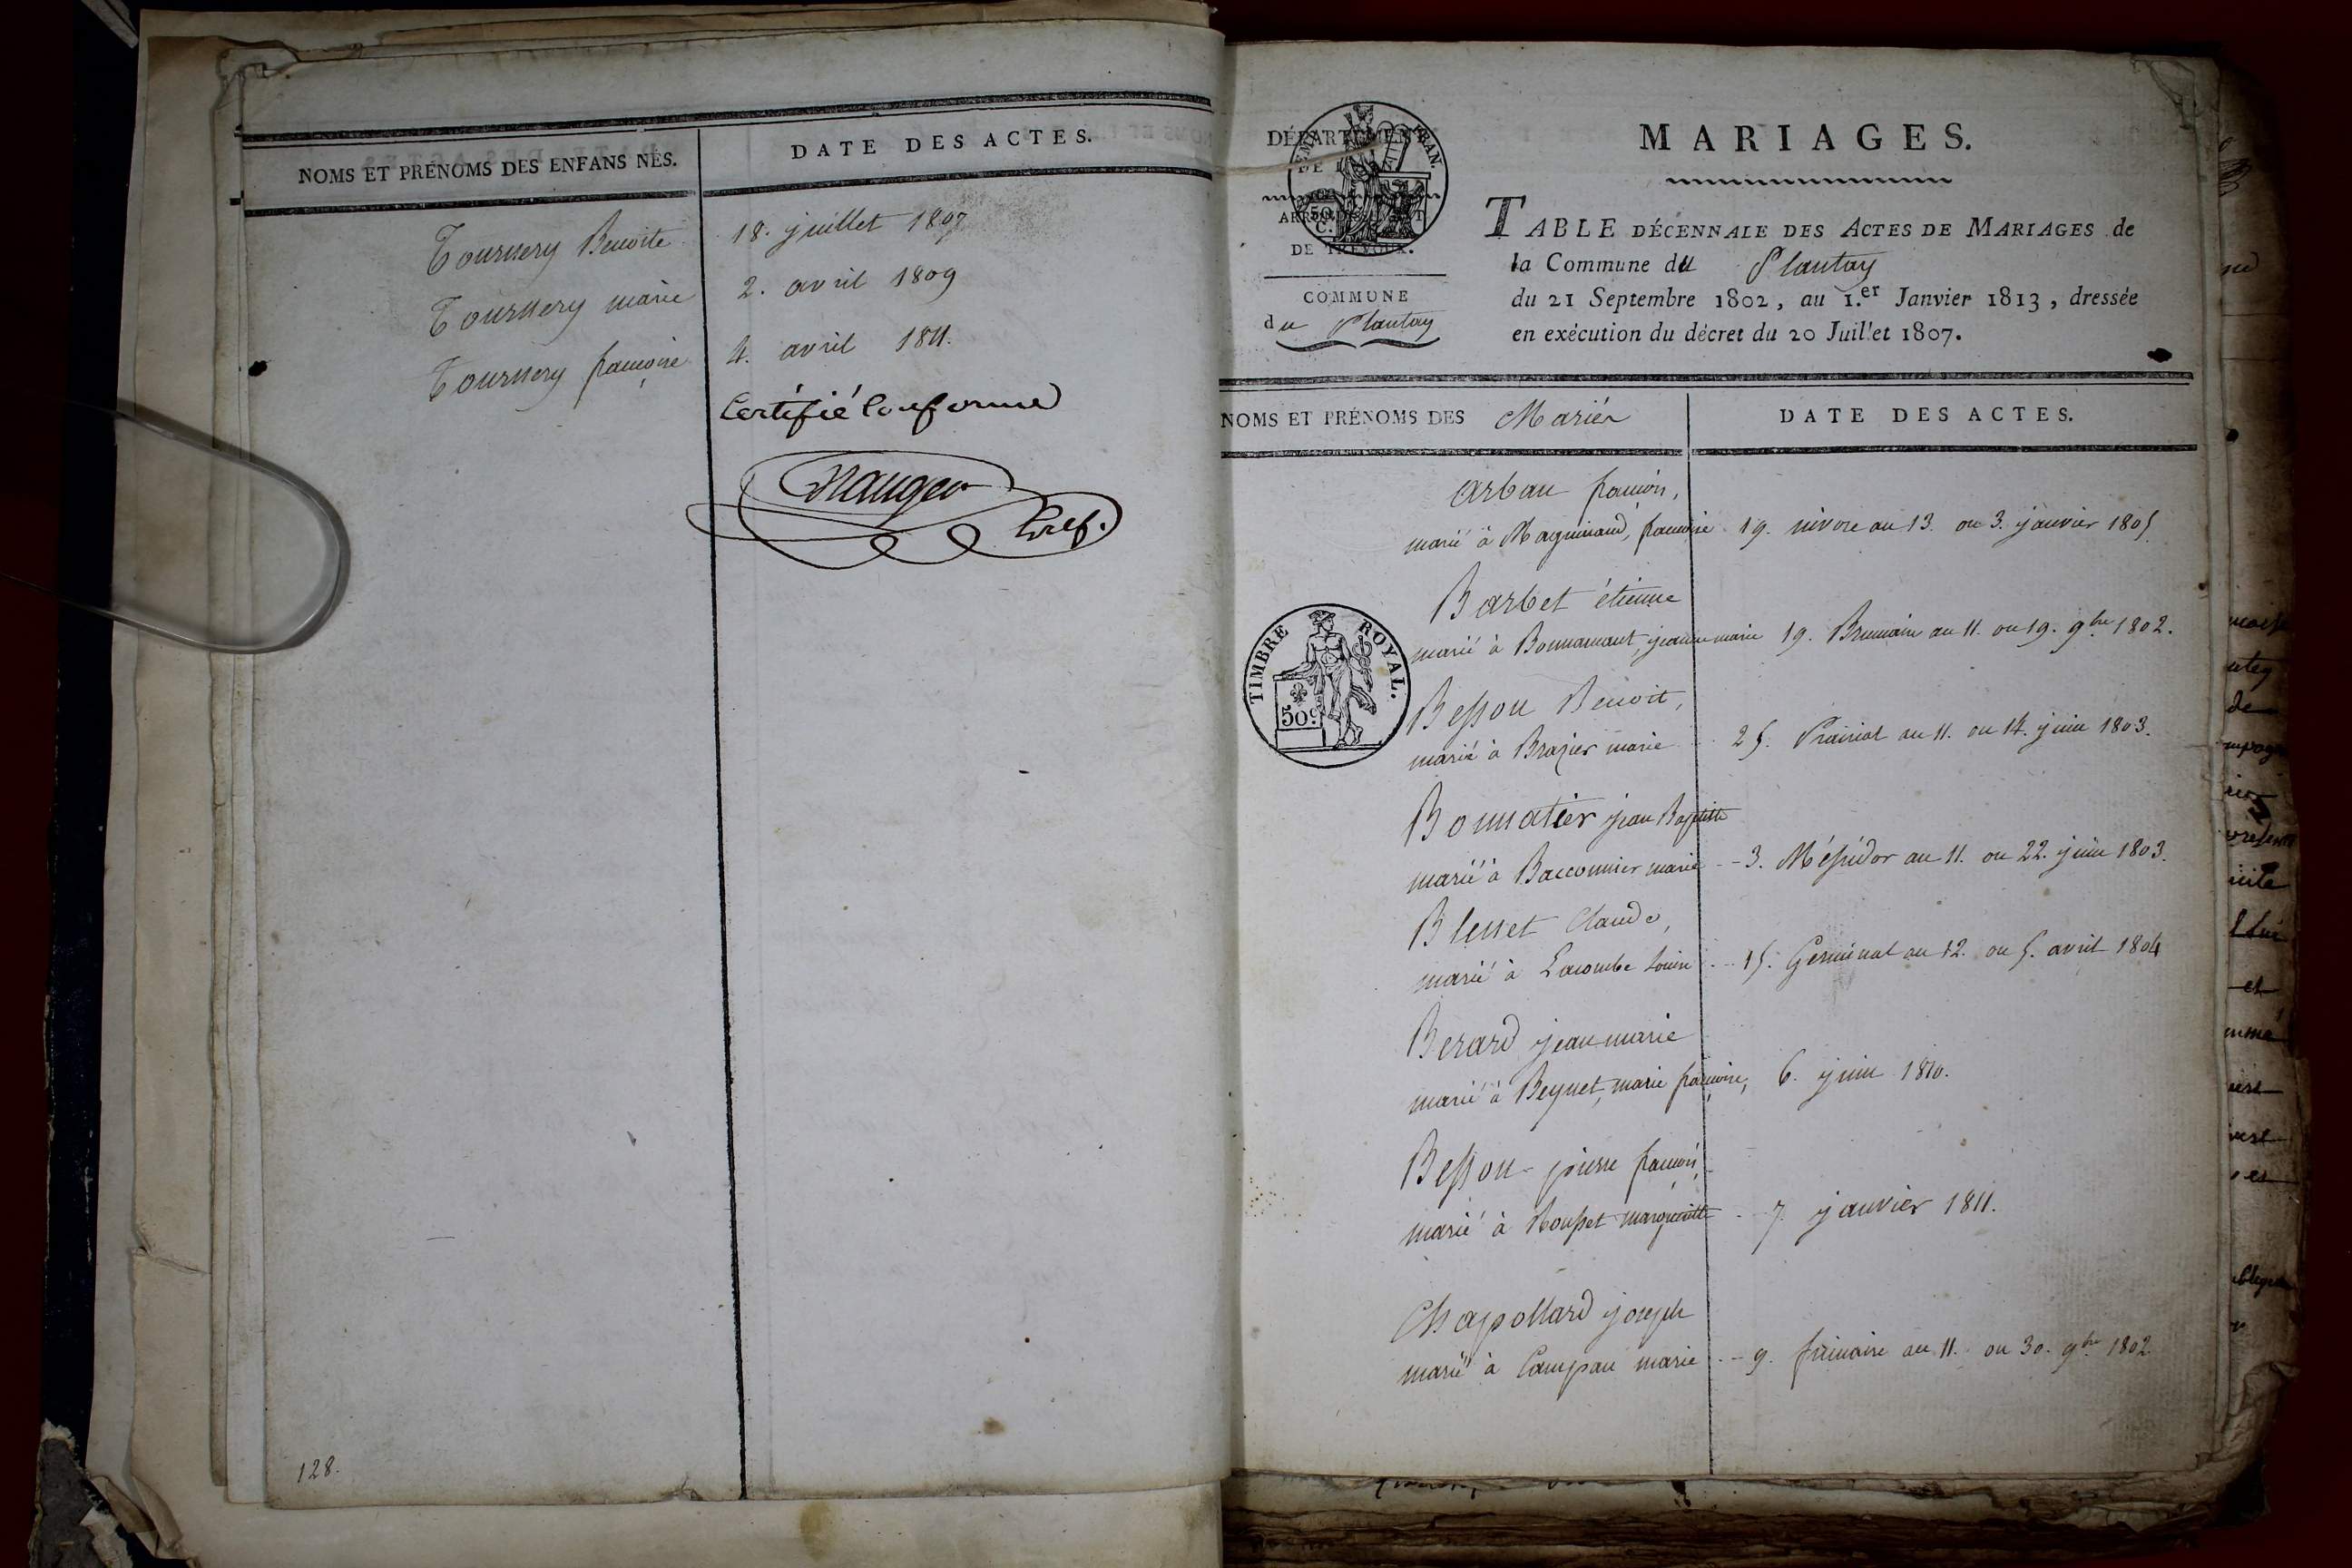 NOMS ET PRÉNOMS DES ENFANS NÉS.
DATE DES ACTES.
Tournery Benoite 18. juillet 1807
Tournery marie 2. avril 1809
Tournery françoise 4. avril 1811.
Certifié Conforme
Greff.
128.
DÉPARTEMENT
DE
EMP FRAN.
50 C.
DE TRÉVOUX.
COMMUNE
du Plantay
MARIAGES.
TABLE DÉCENNALE DES ACTES DE MARIAGES de
la Commune du Plantay
du 21 Septembre 1802, au 1.er Janvier 1813, dressée
en exécution du décret du 20 Juillet 1807.
NOMS ET PRÉNOMS DES Mariés
DATE DES ACTES.
Arban francois,
marié à Magninand, francoise 19. nivose an 13. ou 3. janvier 1805.
Barbet étienne
marié à Bonnamant, jeanne marie 19. Brumaire an 11. ou 19. 9bre 1802.
TIMBRE ROYAL.
50c
Besson Benoit,
marié à Brazier marie 25. Prairial an 11. ou 14. juin 1803.
Bonnatier jean Baptiste
marié à Bacconnier marie 3. Messidor an 11. ou 22. juin 1803.
Blenet Claude,
marié à Lacombe Louise 15. Germinal an 12. ou 5. avril 1804
Berard jean marie
marié à Beynet, marie françoise, 6. juin 1810.
Besson pierre francois,
marié à Rousset marguerite 7. janvier 1811.
Chapollard joseph
marié à Campan marie 9. frimaire an 11. ou 30. 9bre 1802